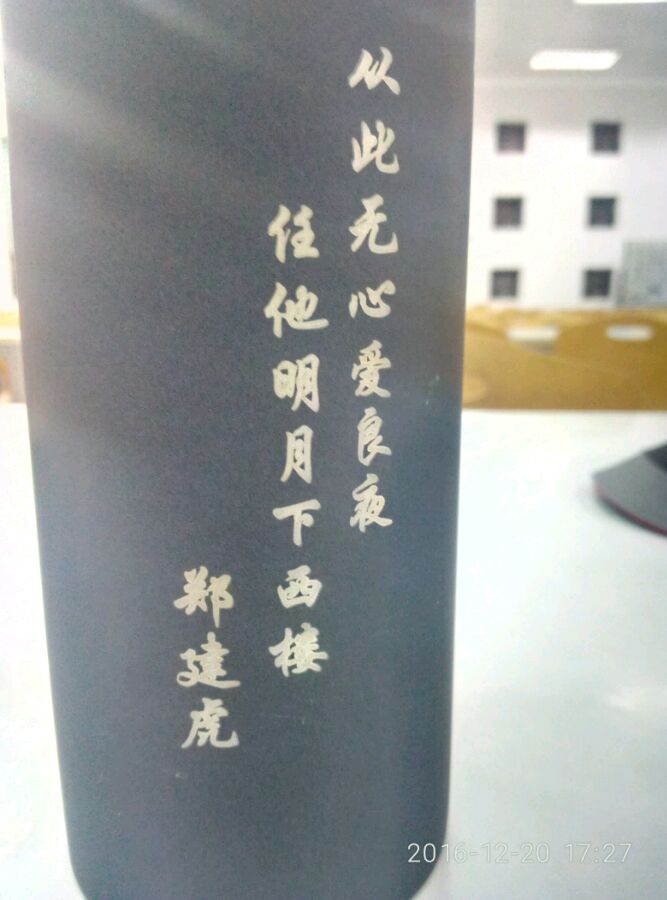 从此无心爱良夜
任他明月下西楼
郑建虎
2016-12-20 17:27